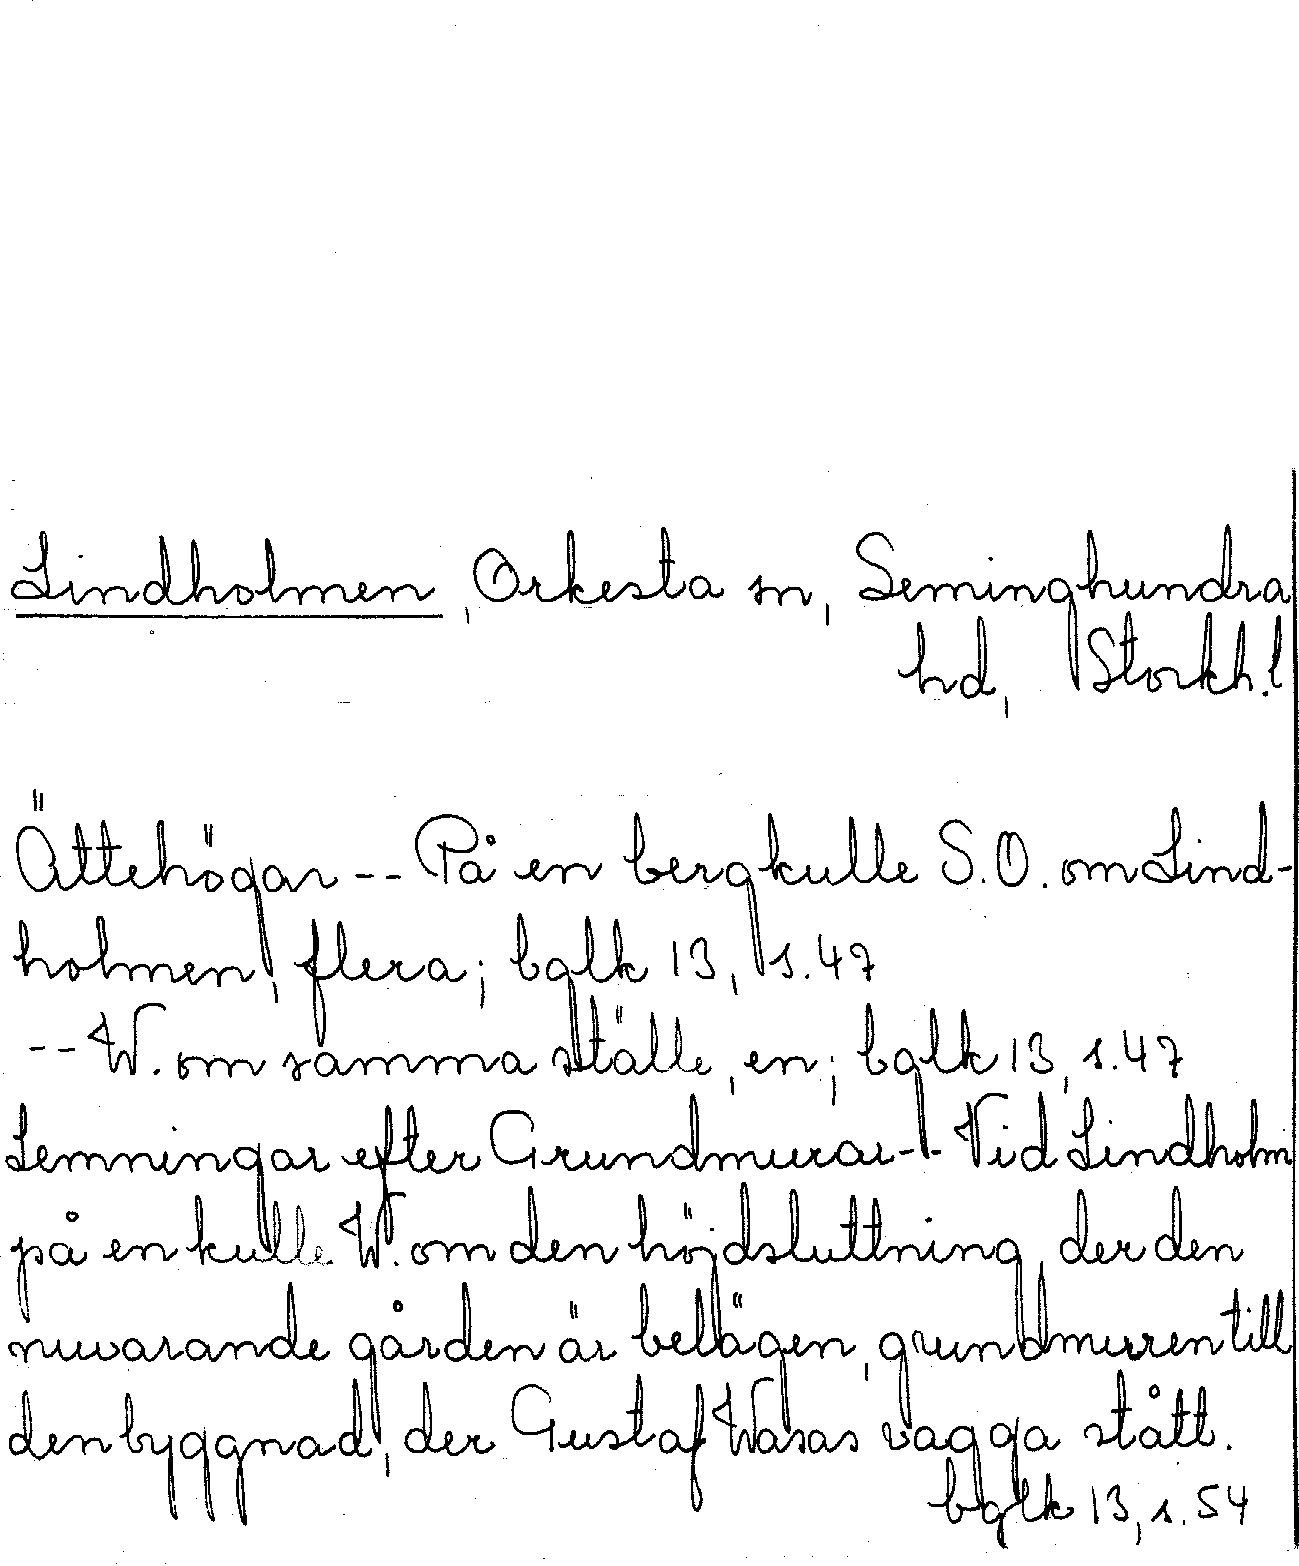 Lindholmen, Orkesta sn, Seminghundra
hd, Storkh.l
Ättehögar -- På en bergkulle S.O. om Lind-
holmen, flera; bglk 13, s.47
-- W. om samma ställe, en; bglk 13, s.47
Lemningar efter Grundmurar -- Vid Lindholm
på en kulle W. om den höjdsluttning, der den
nuvarande gården är belägen, grundmuren till
den byggnad, der Gustaf Wasas vagga stått.
bglk 13, s. 54